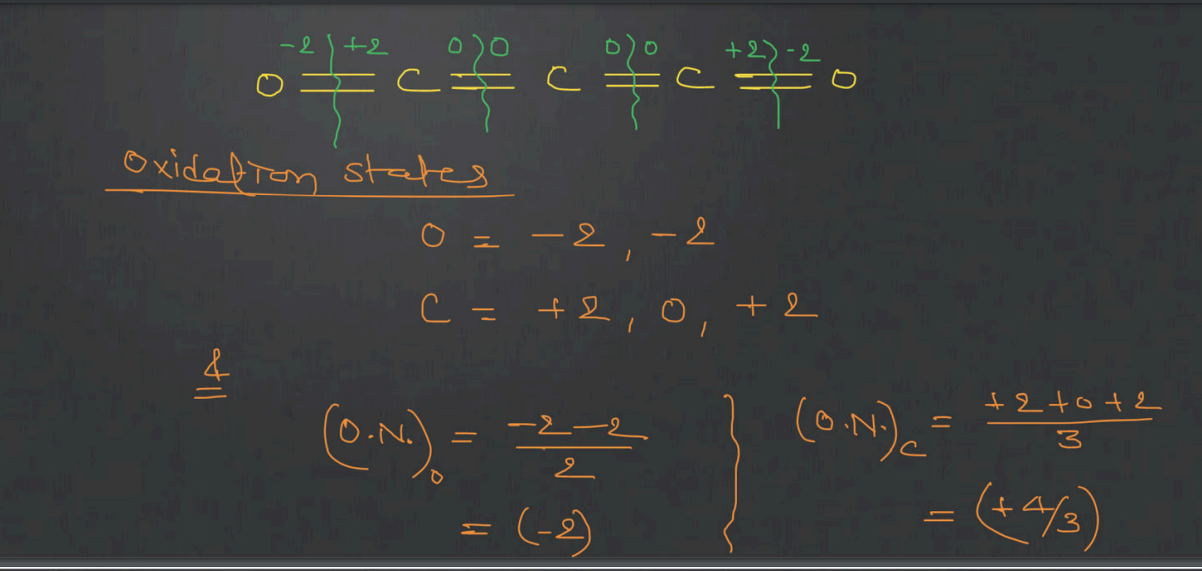 -2 +2 0 0 0 0 +2 -2
O = C = C = C = O
Oxidation states
O = -2, -2
C = +2, 0, +2
&
(O.N.)O = -2-2/2 } (O.N.)C = +2+0+2/3
= (-2) = (+4/3)